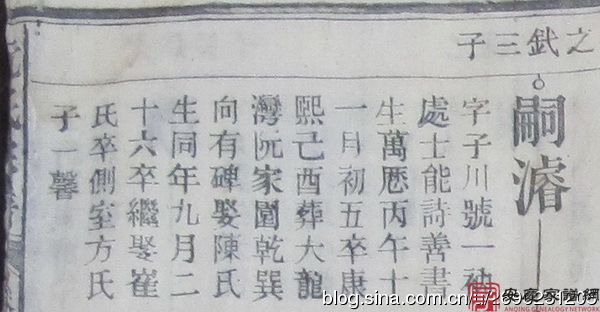 之三子
嗣濬
字子川號一
處士能詩善書
生萬厯丙午十
一月初五卒康
熙己酉葬大龍
灣阮家園乾巽
向有碑娶陳氏
生同年九月二
十六卒繼娶崔
氏卒側室方氏
子一馨
blog.sina.com.cn
安慶家譜網
ANQING GENEALOGY NETWORK